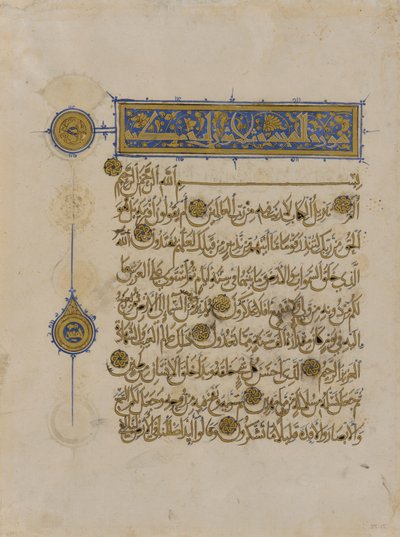 بسم الله الرحمن الرحيم
الم تنزيل الكتاب لا ريب فيه من رب العالمين ام يقولون افتريه بل هو
الحق من ربك لتنذر قوما ما اتيهم من نذير من قبلك لعلهم يهتدون الله
الذي خلق السموات والارض وما بينهما في ستة ايام ثم استوى على العرش ما
لكم من دونه من ولي ولا شفيع افلا تتذكرون يدبر الامر من السماء الى الارض ثم يعرج
اليه في يوم كان مقداره الف سنة مما تعدون ذلك عالم الغيب والشهادة
العزيز الرحيم الذي احسن كل شيء خلقه وبدا خلق الانسان من طين
ثم جعل نسله من سلالة من ماء مهين ثم سويه ونفخ فيه من روحه وجعل لكم السمع
والابصار والافئدة قليلا ما تشكرون وقالوا ءاذا ضللنا في الا